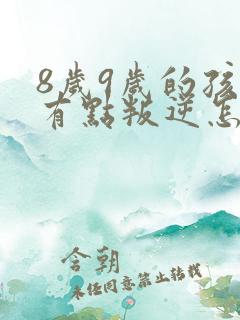 8歲9歲的孩
有點叛逆怎
含朝
未經同意禁止轉載